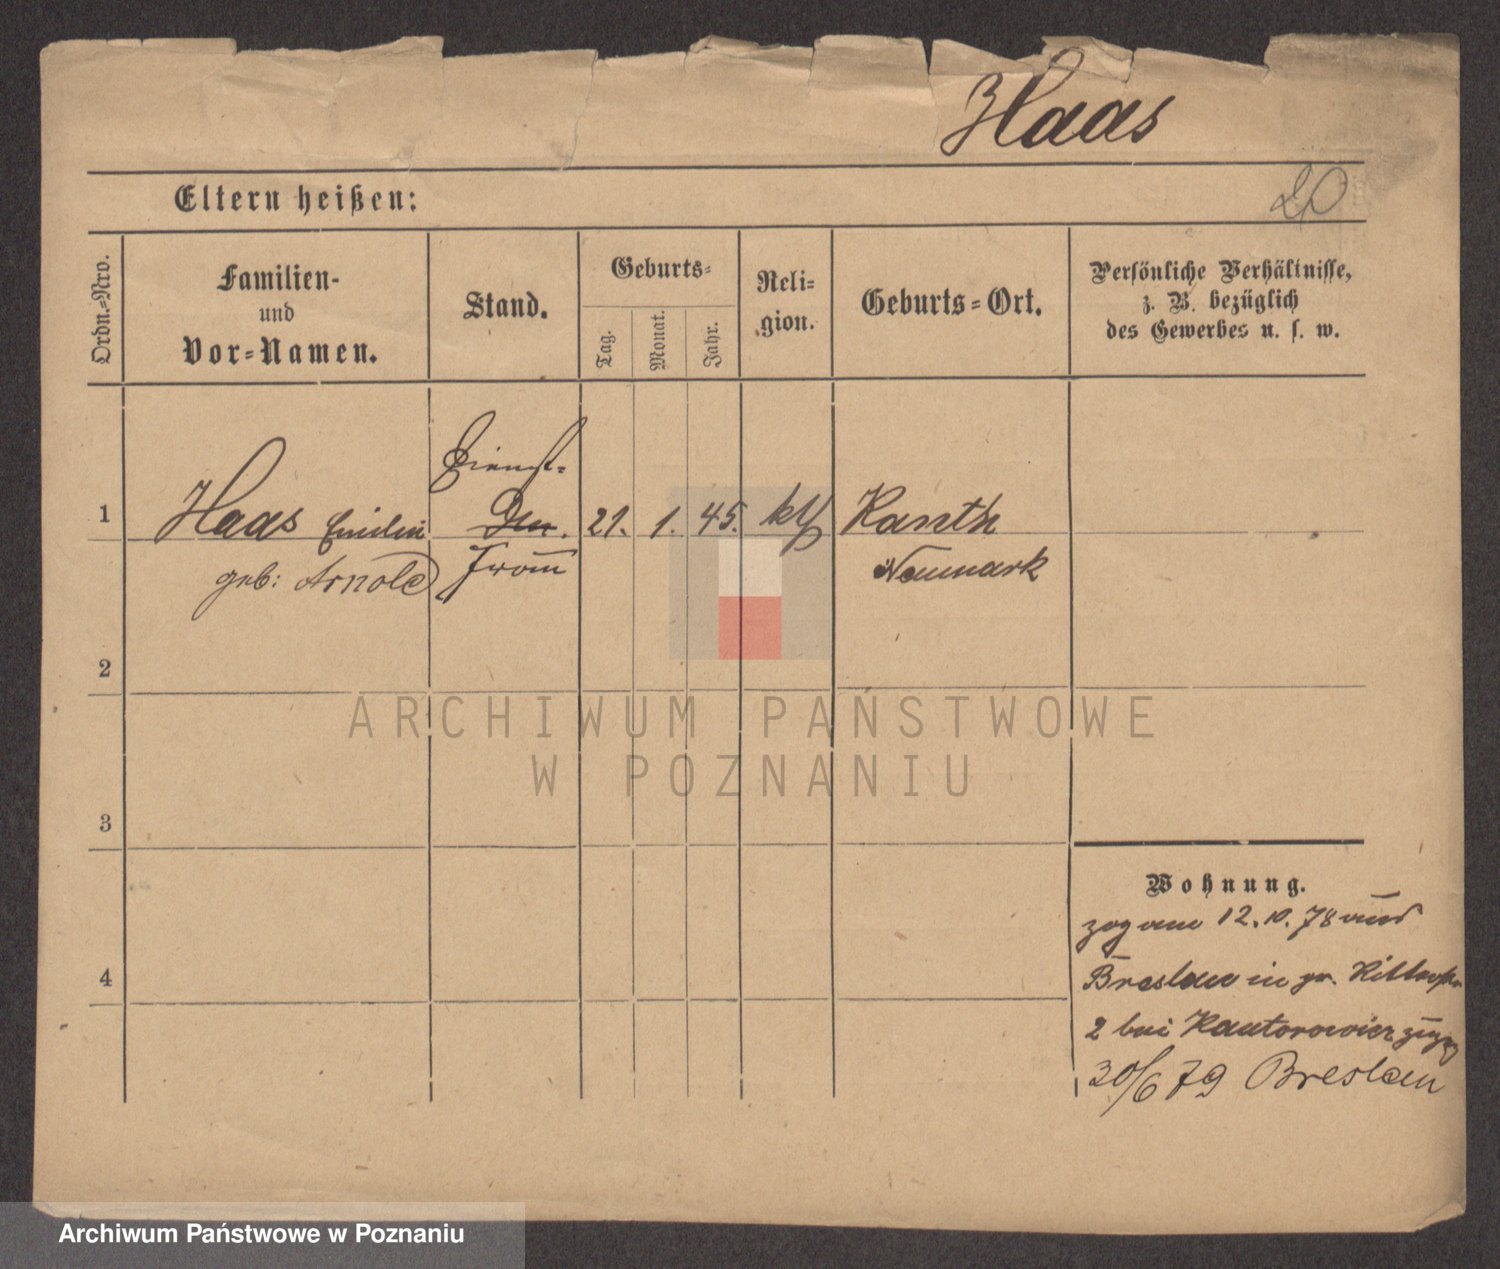 Haas
Eltern heißen:
20
Ordn.-Nro.
Familien-
und
Vor-Namen.
Stand.
Geburts-
Tag.
Monat.
Jahr.
Reli-
gion.
Geburts-Ort.
Persönliche Verhältnisse,
z. B. bezüglich
des Gewerbes u. s. w.
Dienst-
1 Haas Emilie 21. 1. 45. kth Kanth
geb: Arnold Frau Neumark
2
3
4
Wohnung.
zog am 12.10.78 aus
Breslau in gr. Ritterstr
2 bei Kantorowicz zugez
30/6 79 Breslau
ARCHIWUM PAŃSTWOWE
W POZNANIU
Archiwum Państwowe w Poznaniu